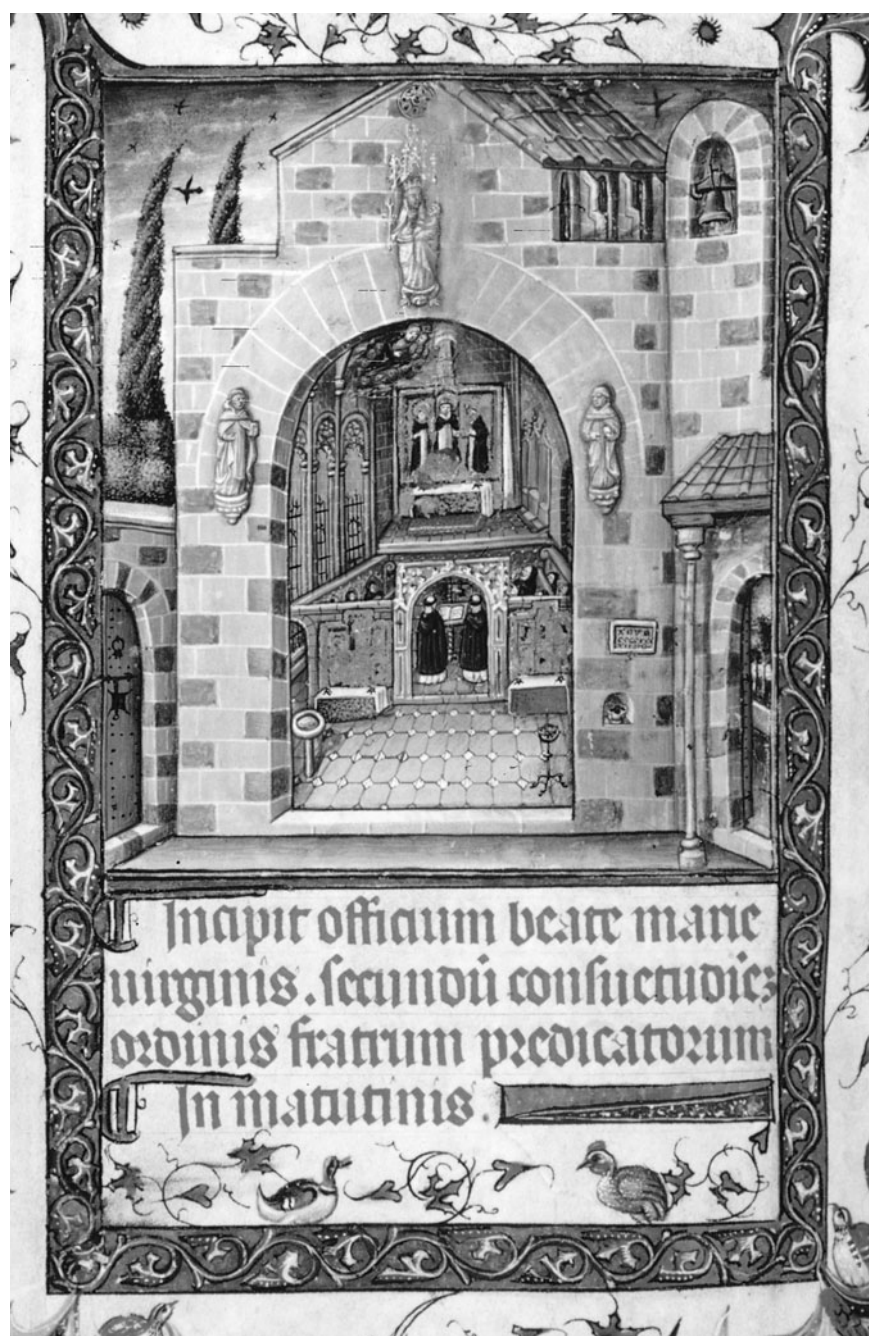 Incipit officium beate marie
uirginis . secundū consuetudīez
ordinis fratrum predicatorum
In matutinis .